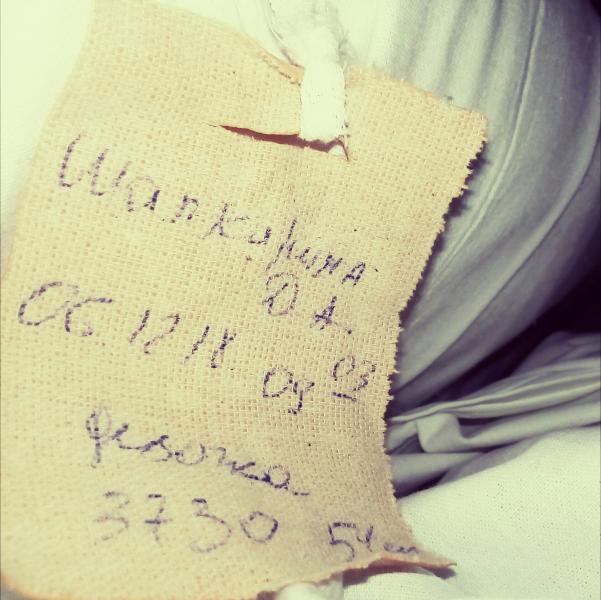 Шапкарина
Д А.
06 12 18 09 03
девочка
3730 54 см